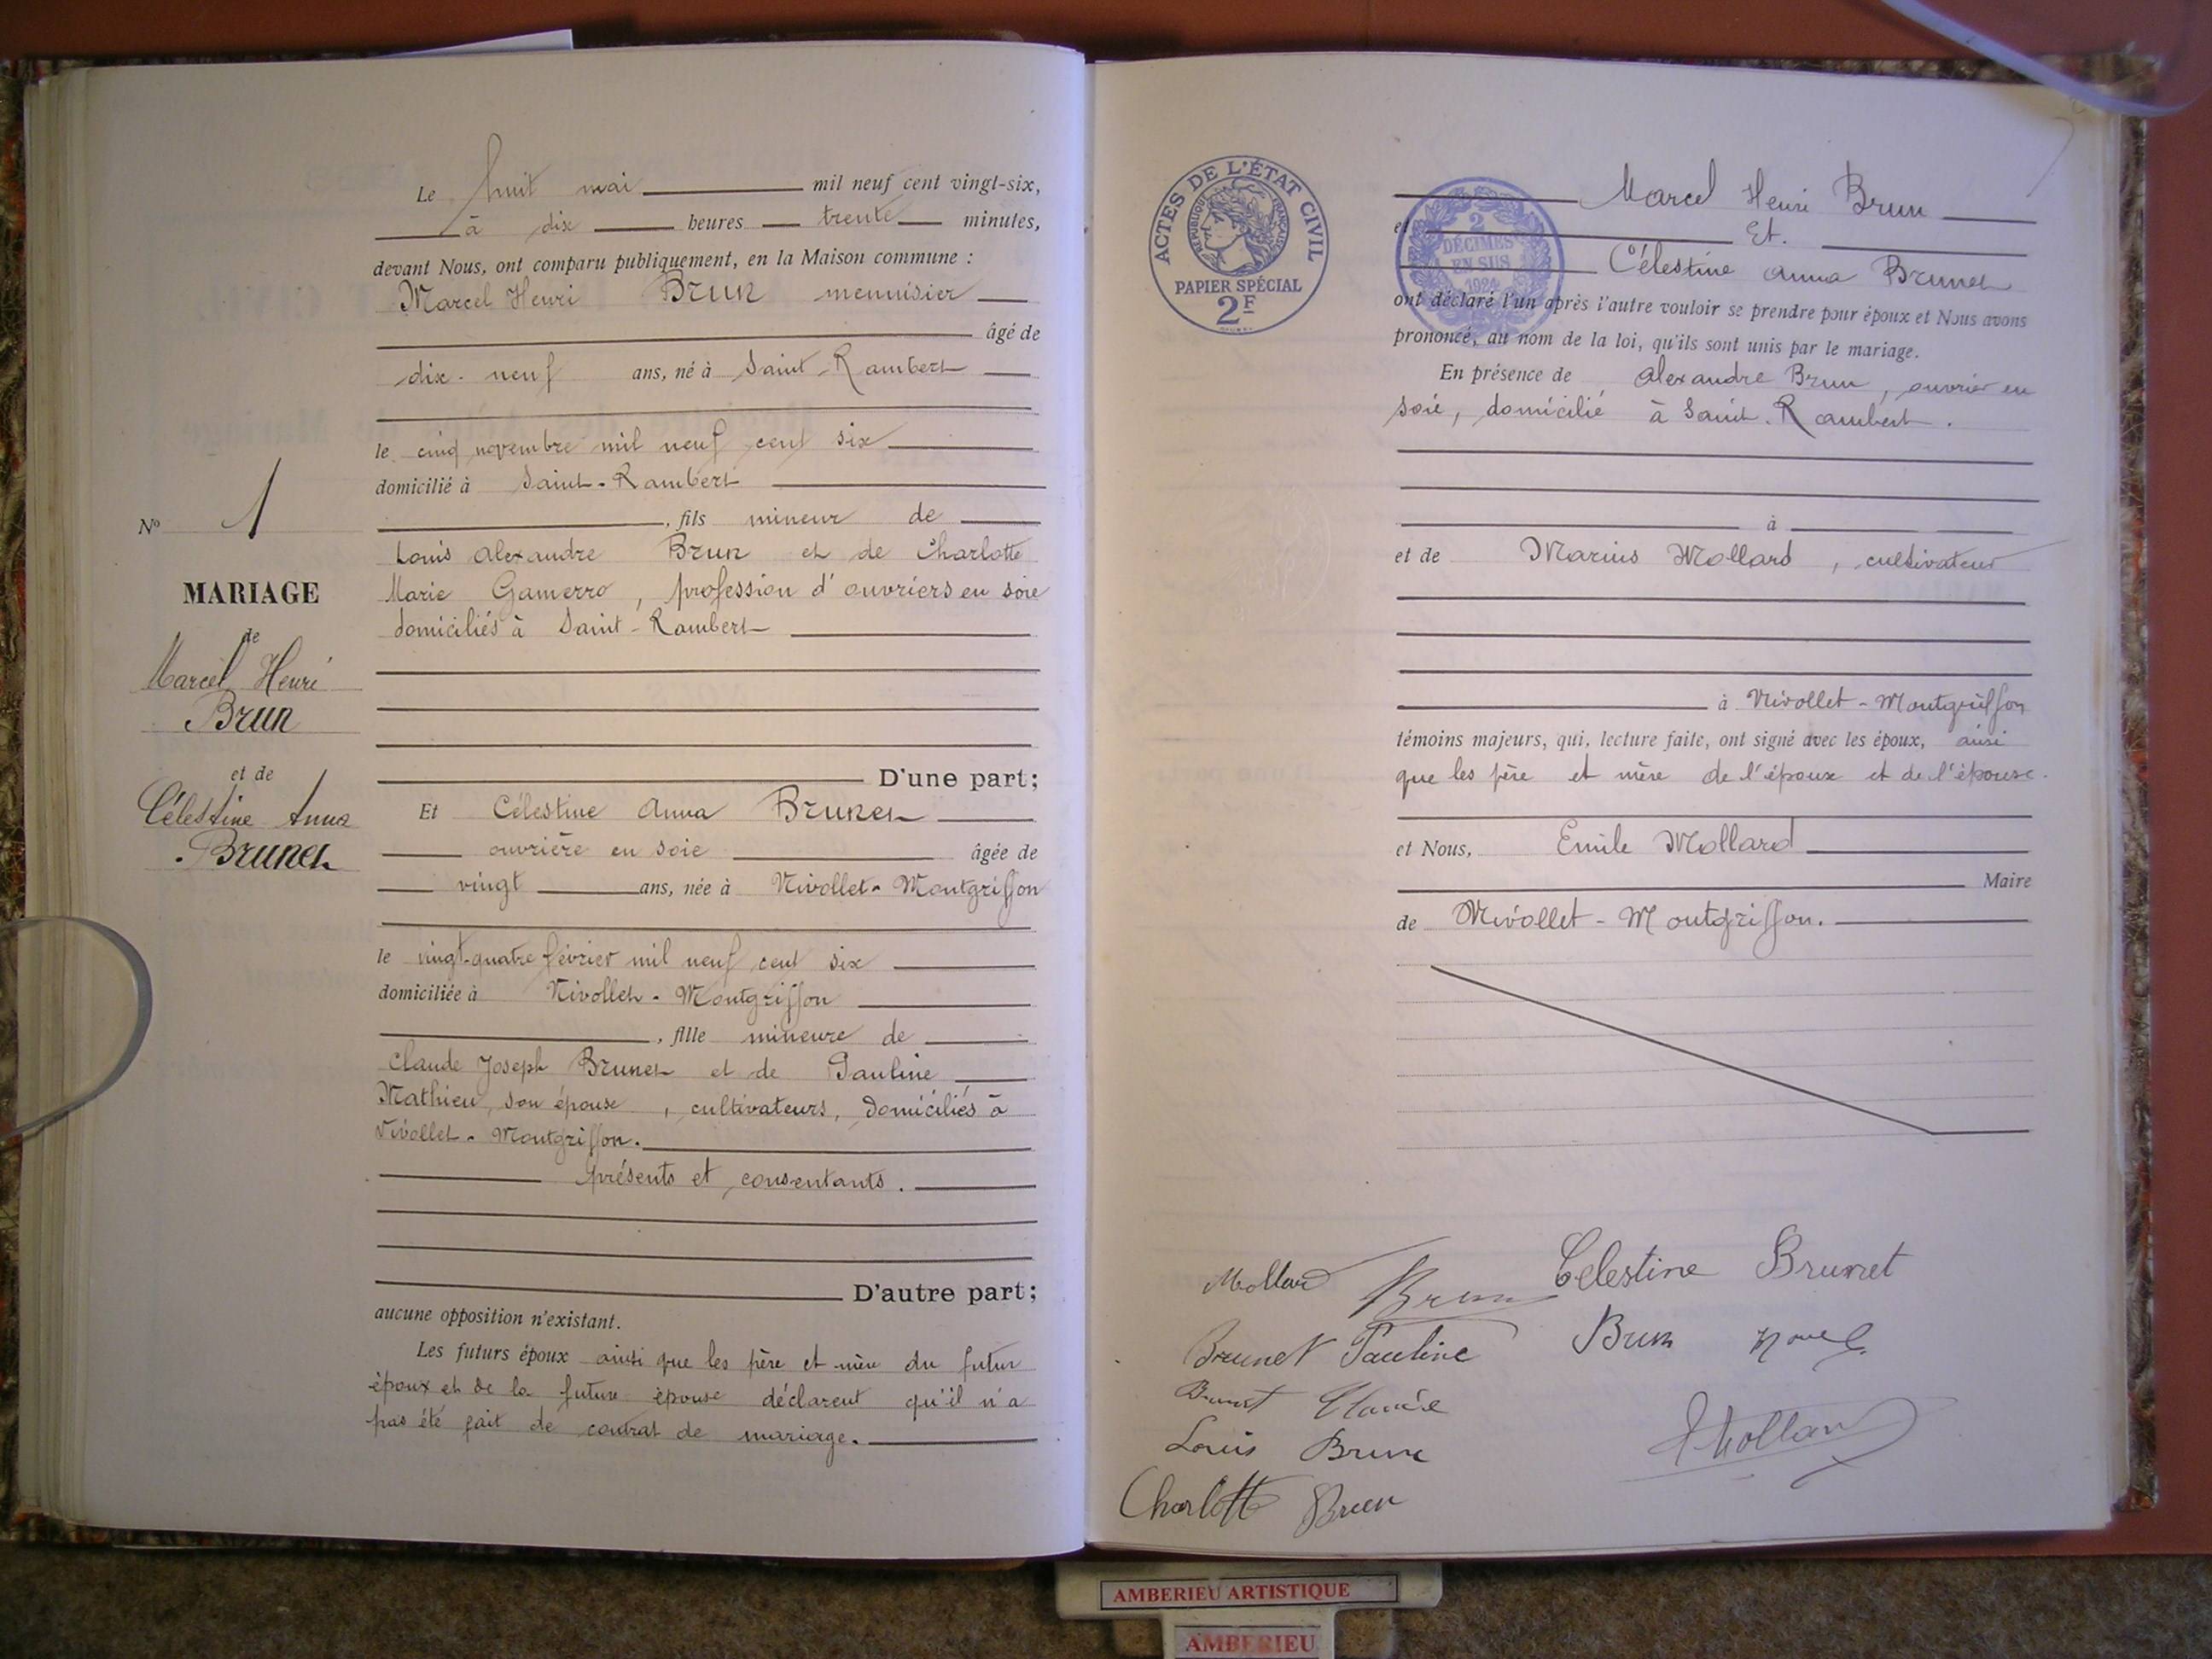 Le huit mai mil neuf cent vingt-six,
à dix heures trente minutes,
devant Nous, ont comparu publiquement, en la Maison commune :
Marcel Henri Brun menuisier
âgé de
dix-neuf ans, né à Saint-Rambert
le cinq novembre mil neuf cent six
domicilié à Saint-Rambert
, fils mineur de
Louis Alexandre Brun et de Charlotte
Marie Gamerro, profession d'ouvriers en soie
domiciliés à Saint-Rambert
D'une part;
Et Célestine Anna Brunet
ouvrière en soie âgée de
vingt ans, née à Nivollet-Montgriffon
le vingt-quatre février mil neuf cent six
domiciliée à Nivollet-Montgriffon
, fille mineure de
Claude Joseph Brunet et de Pauline
Mathieu, son épouse, cultivateurs, domiciliés à
Nivollet-Montgriffon.
présents et consentants.
D'autre part;
aucune opposition n'existant.
Les futurs époux ainsi que les père et mère du futur
époux et de la future épouse déclarent qu'il n'a
pas été fait de contrat de mariage.
No 1
MARIAGE
de
Marcel Henri
Brun
et de
Célestine Anna
Brunet
ACTES DE L'ÉTAT CIVIL
RÉPUBLIQUE FRANÇAISE
PAPIER SPÉCIAL
2F
2
DÉCIMES
EN SUS
1924
Marcel Henri Brun
et Et.
Célestine Anna Brunet
ont déclaré l'un après l'autre vouloir se prendre pour époux et Nous avons
prononcé, au nom de la loi, qu'ils sont unis par le mariage.
En présence de Alexandre Brun, ouvrier en
soie, domicilié à Saint-Rambert.
à
et de Marius Mollard, cultivateur
à Nivollet-Montgriffon
témoins majeurs, qui, lecture faite, ont signé avec les époux, ainsi
que les père et mère de l'époux et de l'épouse.
et Nous, Emile Mollard
Maire
de Nivollet-Montgriffon.
Mollard Brun Celestine Brunet
Brunet Pauline Brun
Brunet Claude
Louis Brun
Mollard
Charlotte Brun
AMBERIEU ARTISTIQUE
AMBERIEU